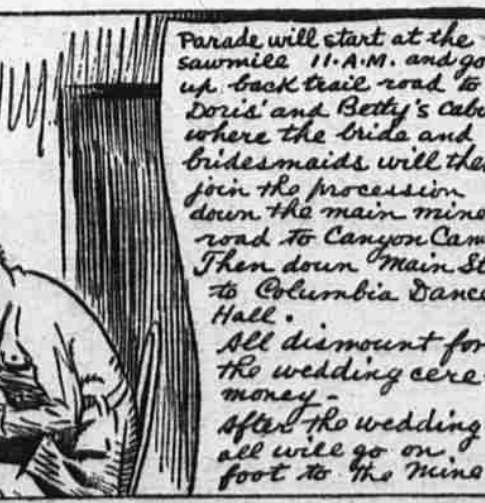 Parade will start at the
sawmill 11.A.M. and go
up back trail road to
Doris' and Betty's Cab
where the bride and
bridesmaids will the
join the procession
down the main mine
road to Canyon Cam
Then down Main St
to Columbia Dance
Hall.
All dismount for
the wedding cere-
money -
After the wedding
all will go on
foot to the mine